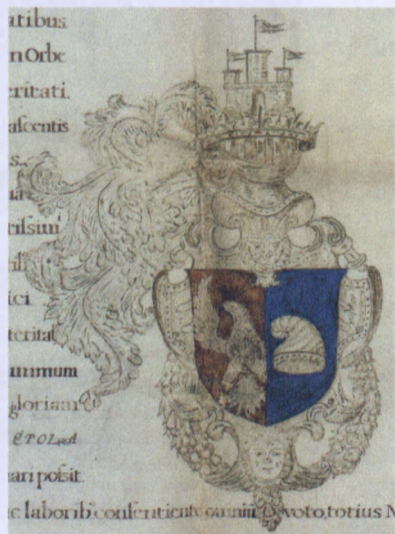 atibus
n Orbe
eritati.
ascentis
s.
na
tissimi
ici
terita
ummum
gloriam
ETOL
uari possit
c laborib consentiente omniu voto, totius N